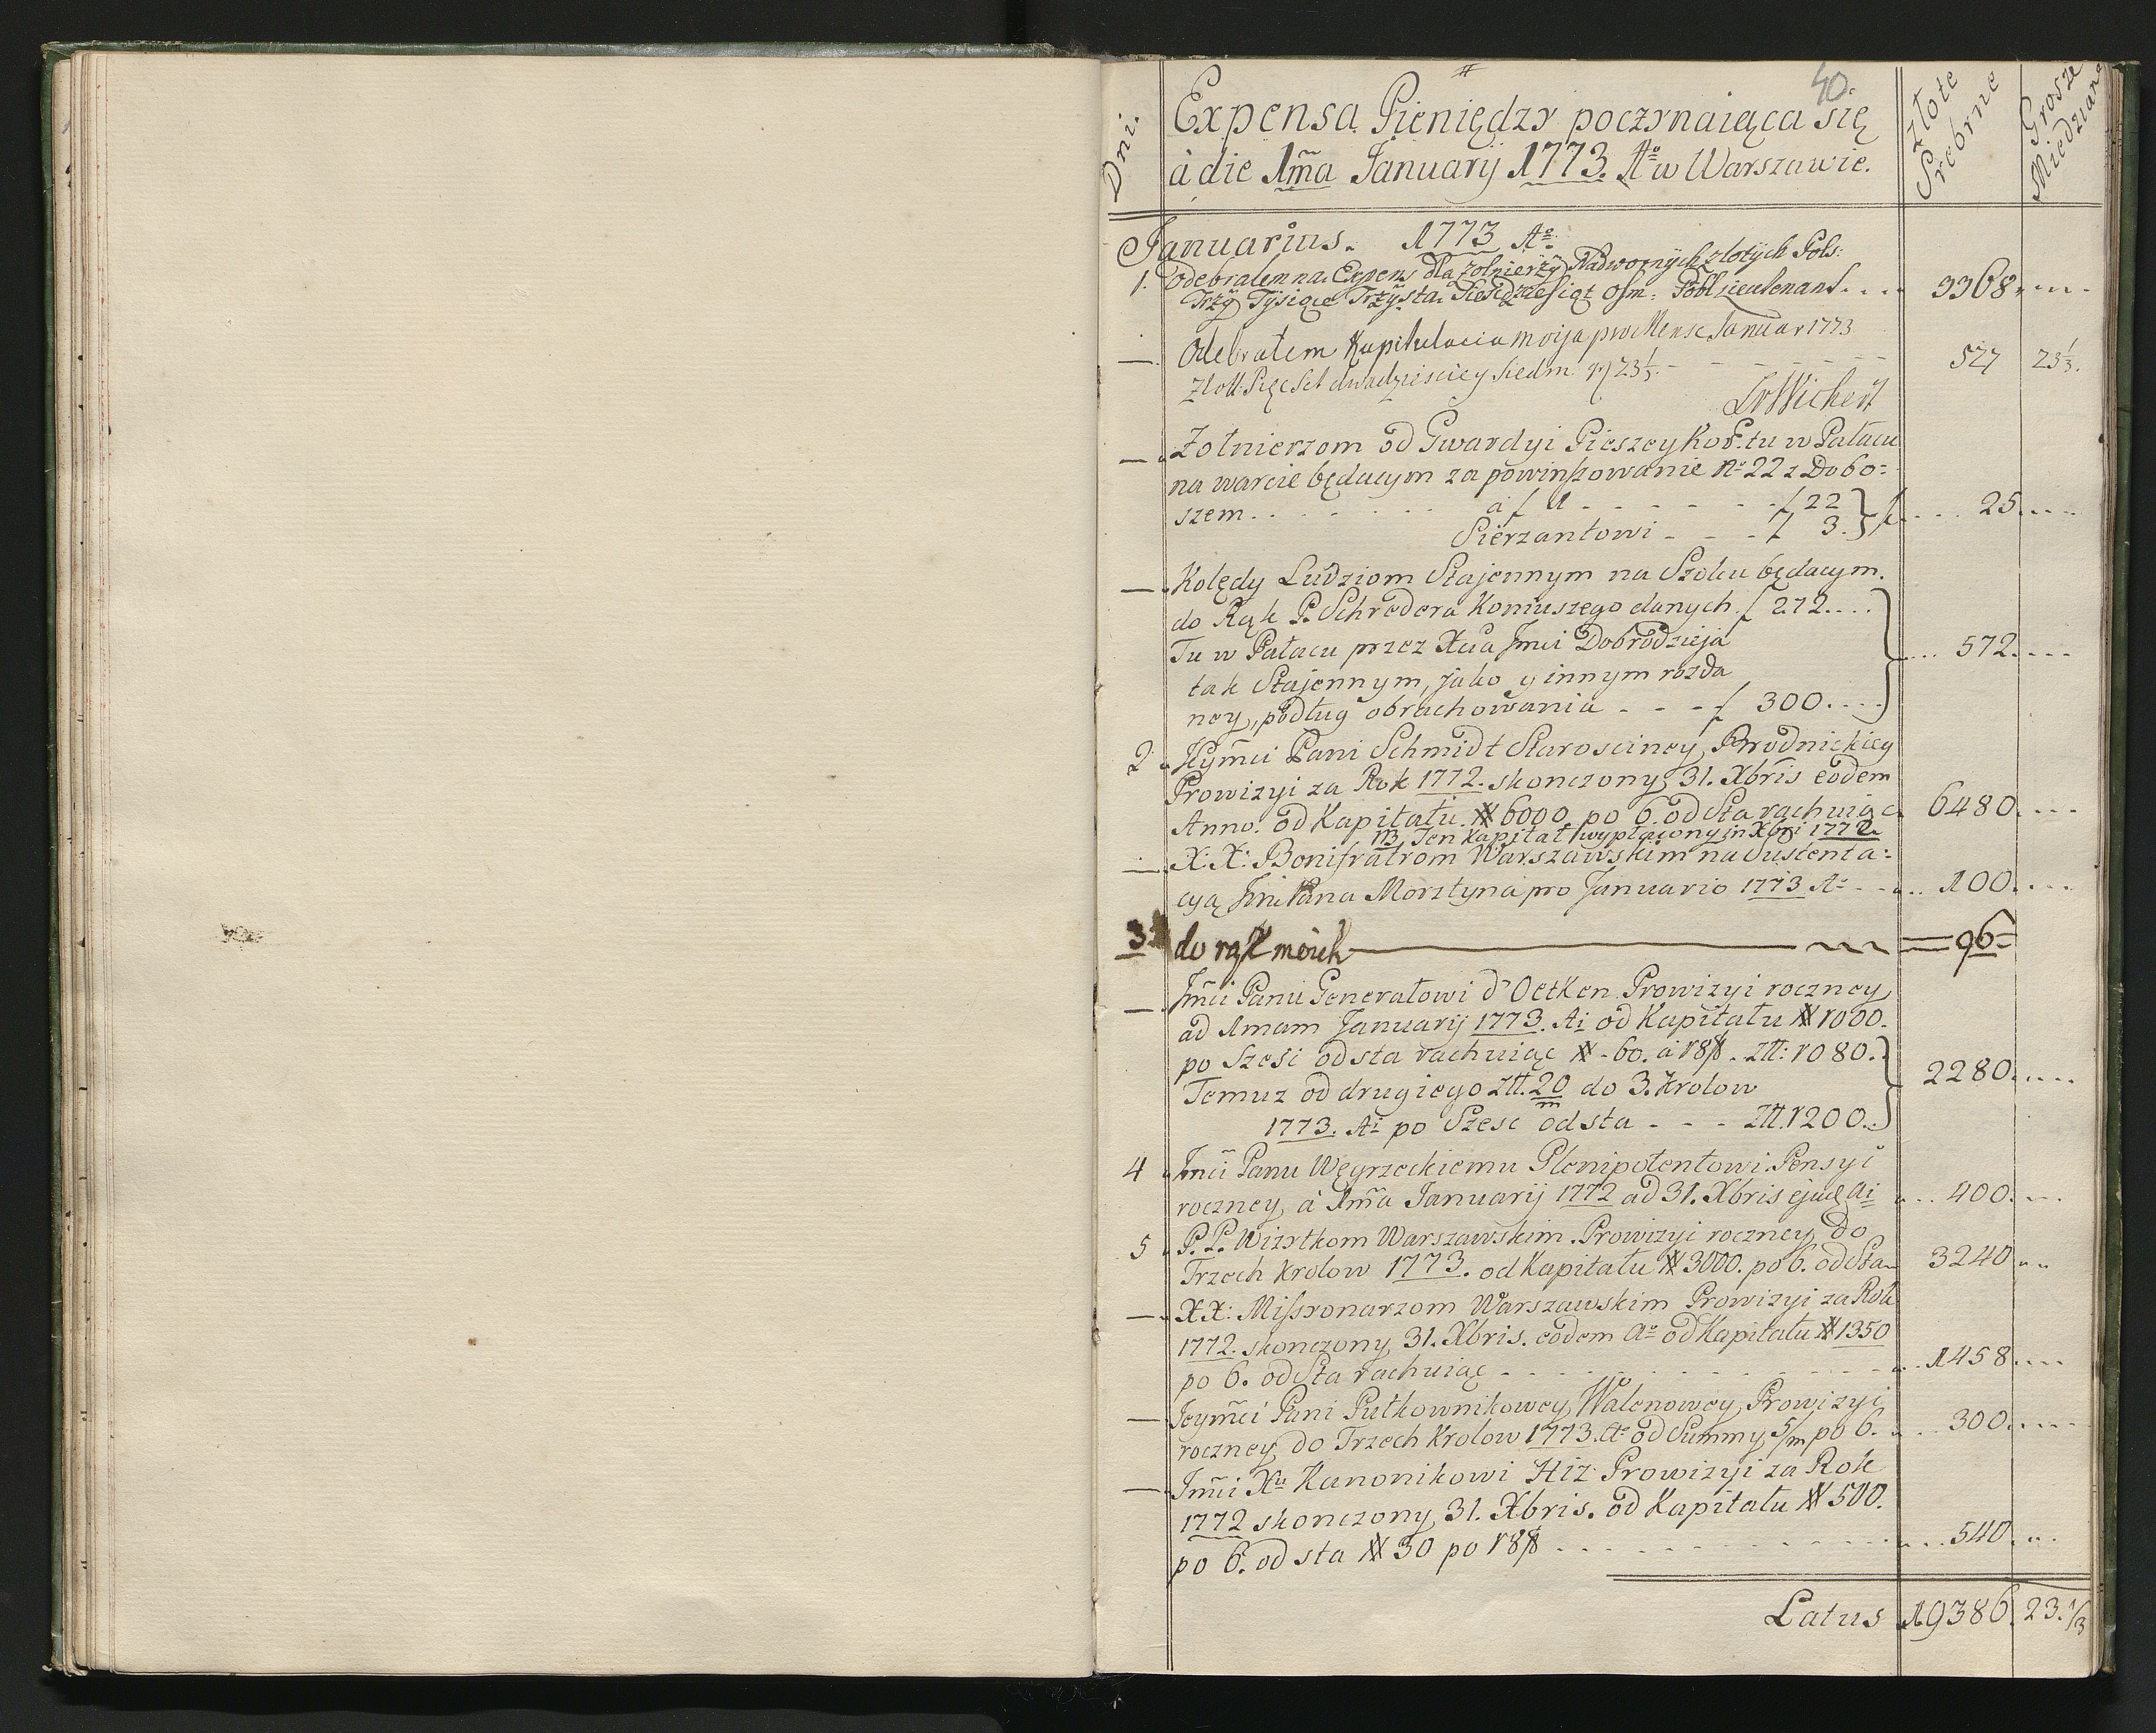 40
Dni.
Expensa Pieniędzy poczynaiąca się
à die 1m̃a Januarij 1773. Aº w Warszawie.
Złote Srebrne
Grosze Miedziane
Januarius. 1773 Aº
1. Odebralem na Expens dla Zolnierzÿ Nadwornÿch zlotÿch Pols:
Trzÿ Tÿsiące Trzÿsta Siesdziesiąt osm: lieutenant.... 3368....
—. Odebratem Kapitulacia moija pro Mense Januar 1773
Zlott: Pięcset dwadziesciey siedm gr 23⅓. - - - - - - 527 23⅓.
—. Zołnierzom od Gwardyi Pieszey Kor. tu w Pałacu
na warcie będącym za powinszowanie Nº 22 z Dobo=
szem. . . . . . . . à f 1 - - - - - - f 22 } f.... 25....
Sierzantowi - - - f 3.
—. Kolędy Ludziom Stajennym na Szolcu będącym.
do Rąk P. Schredera Koniuszego danych. f 272....
Tu w Pałacu przez Xcia Jmci Dobrodzieja
tak Stajennym, jako y innym rozda
ney, podług obrachowania - - - f 300.... } .... 572....
2. Jeym̃ci Pani Schmidt Starosciney Brodnickiey
Prowizyi za Rok 1772. skonczony 31. Xbris eodem
Anno. od Kapitału. # 6000. po 6. od Sta rachuiąc 6480....
NB Ten Kapitał wypłacony in Xbri 1772.
—. X: X: Bonifratrom Warszawskim na Sustenta=
cyą Jmci Pana Morsztyna pro Januario 1773 Aº - - .. 100....
3. do rąk moich — = 96 =
—. Jm̃ci Panu Generałowi d'Oetken Prowizyi roczney
ad 1mam Januarij 1773. Ai od Kapitału # 1000.
po Szesć od sta rachuiąc # - 60. à 18 f. Złł: 1080.
Temuz od drugiego Złł. 20/m do 3. Krolow
1773. Ai po Szesc od sta - - - Złł. 1200. } 2280....
4. Jm̃ci Panu Węgrzeckiemu Plenipotentowi Pensyi
roczney, à 1m̃a Januarij 1772 ad 31. Xbris ejusd Ai ... 400....
5. P.P. Wizytkom Warszawskim. Prowizyi roczney do
Trzech Krolow 1773. od Kapitału # 3000. po 6. od Sta 3240..
—. XX: Missyonarzom Warszawskim Prowizyi za Rok
1772. skonczony 31. Xbris. eodem Aº od Kapitału # 1350
po 6. od Sta rachuiąc - - - - - - - - - - ... 1458....
—. Jeym̃ci Pani Pułkownikowey Walenowey, Prowizyi
roczney do Trzech Krolow 1773. Aº od Summy 5/m po 6. ... 300....
—. Jm̃ci Xu Kanonikowi Hiz Prowizyi za Rok
1772 skonczony 31. Xbris. od Kapitału # 500.
po 6. od sta # 30 po 18 f - - - - - - - - - ... 540...
Latus 19386. 23.⅓